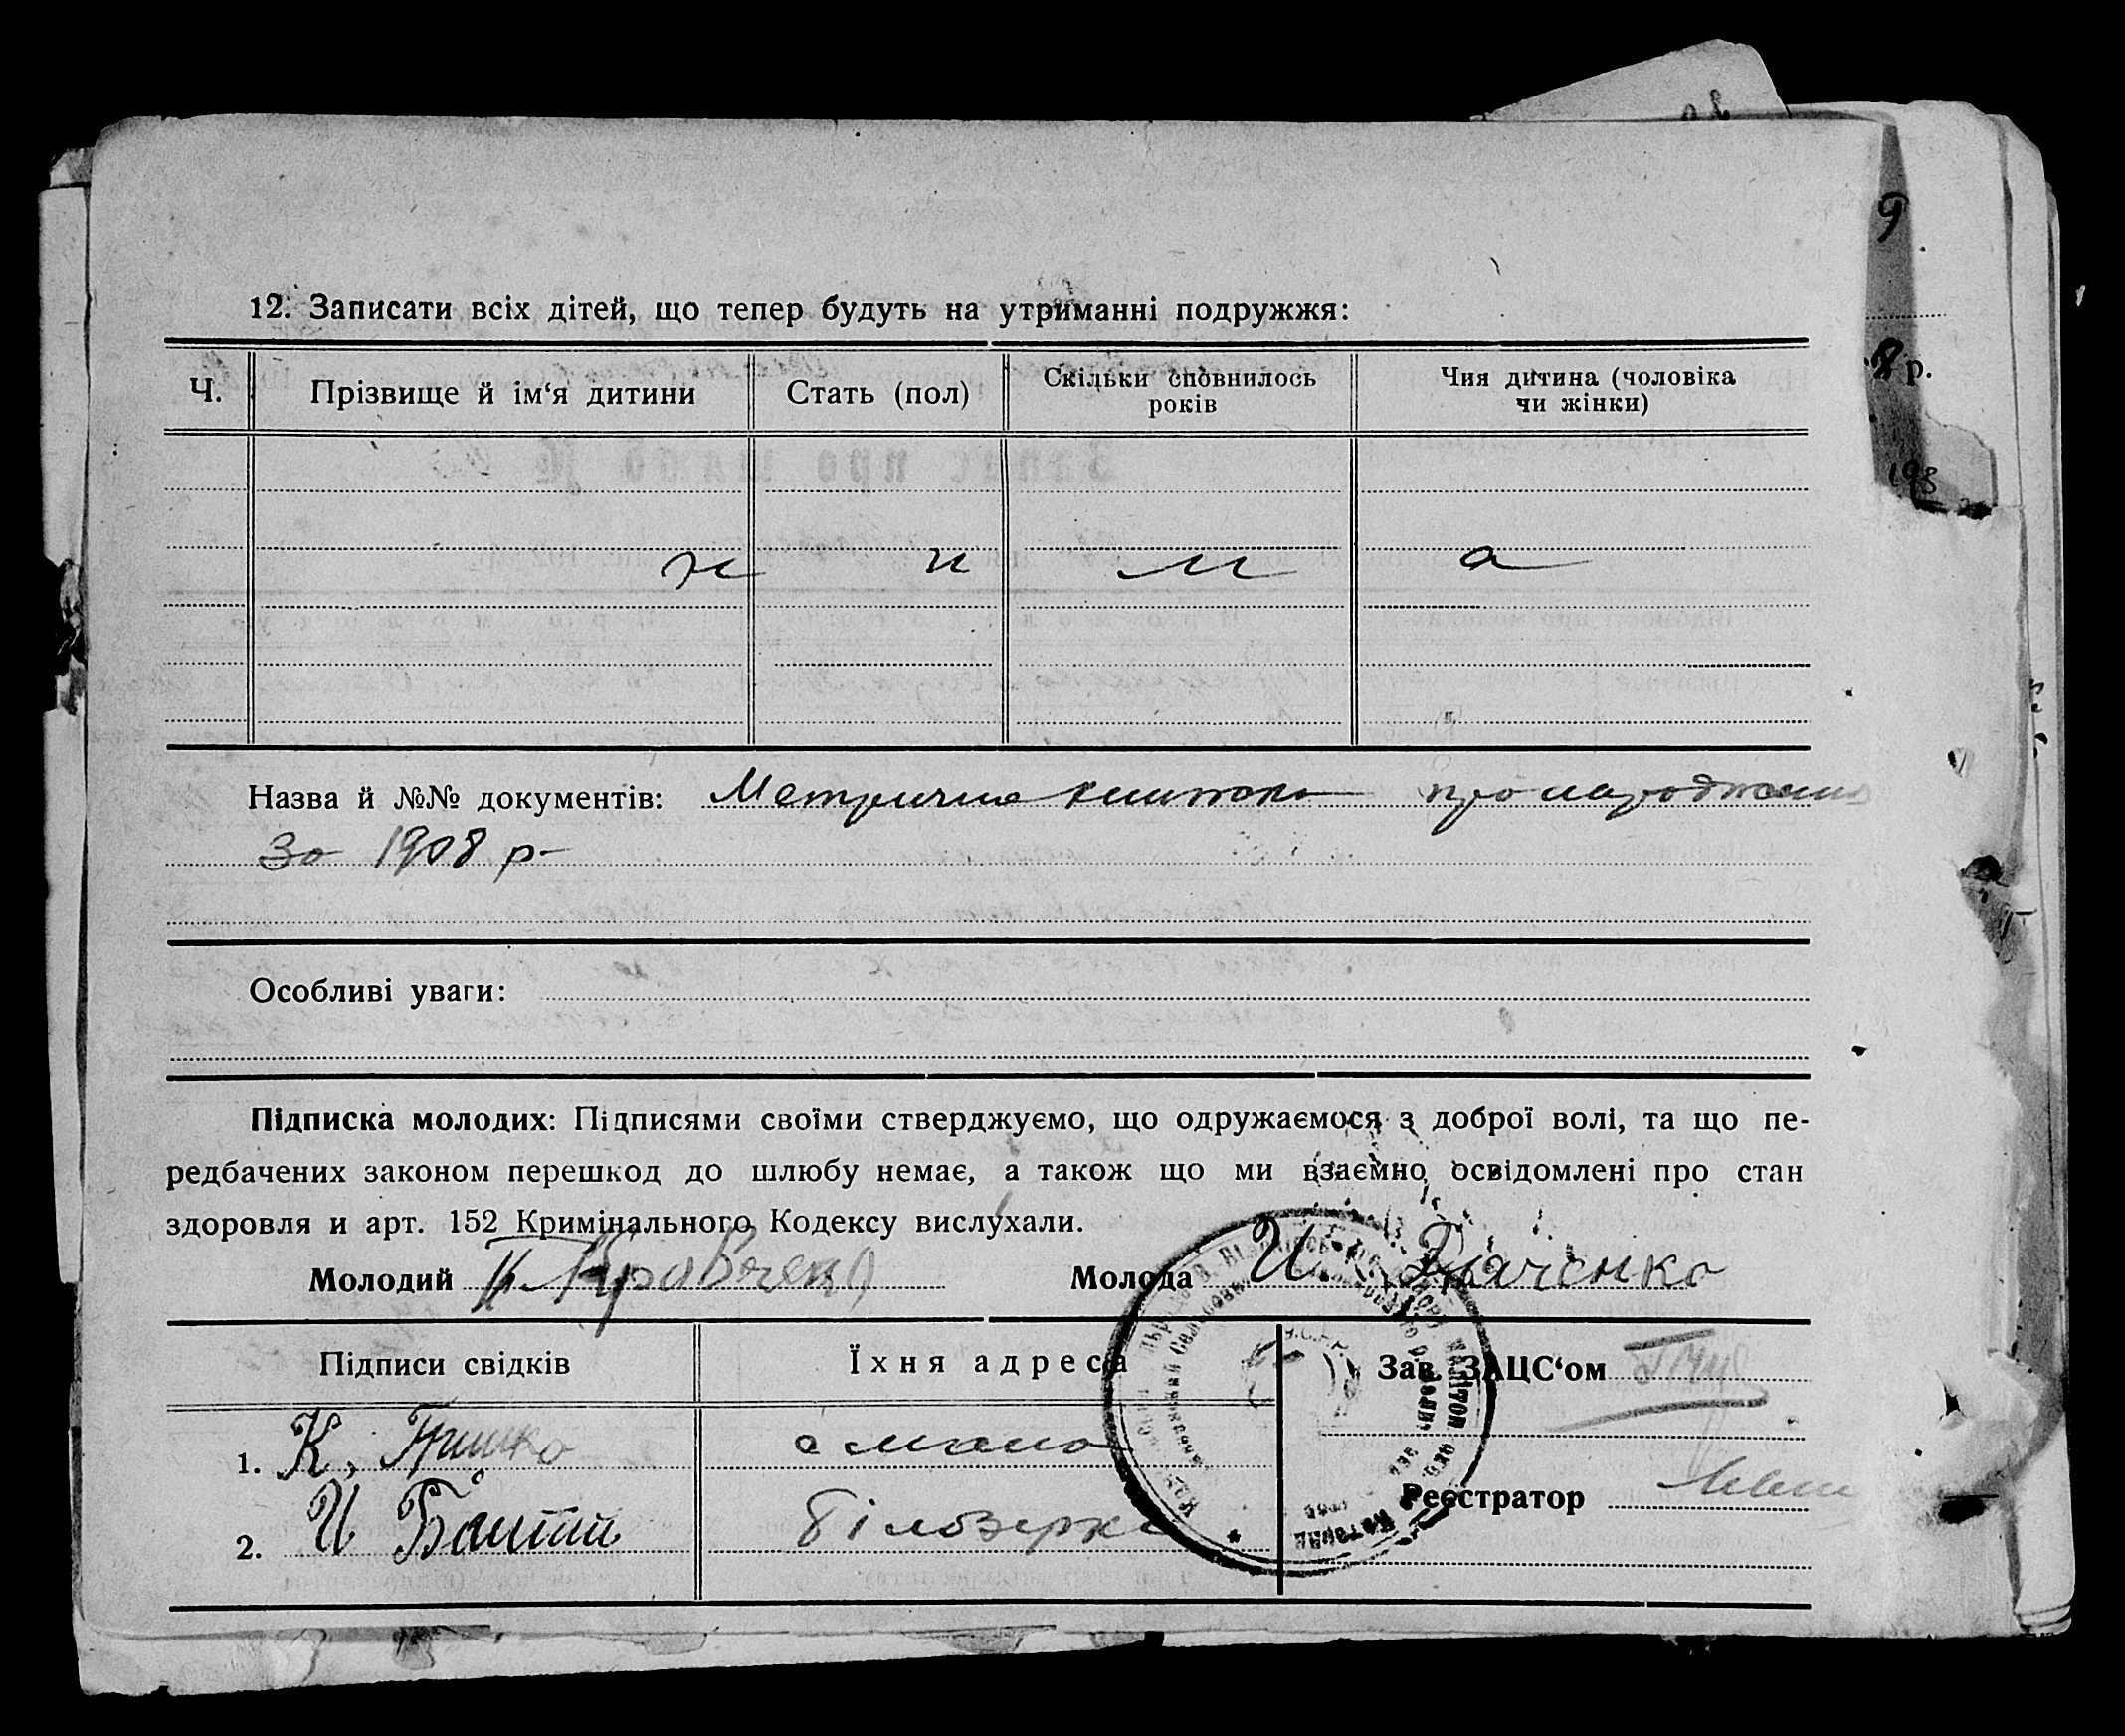 9
12. Записати всіх дітей, що тепер будуть на утриманні подружжя:
8 р.
Ч. Прізвище й ім‘я дитини Стать (пол) Скільки сповнилось років Чия дитина (чоловіка чи жінки)
193
н и м а
Назва й №№ документів: Метрична книжка про народження
за 1908 р
Особливі уваги:
Підписка молодих: Підписями своїми стверджуємо, що одружаємося з доброї волі, та що пе-
редбачених законом перешкод до шлюбу немає, а також що ми взаємно освідомлені про стан
здоровля и арт. 152 Кримінального Кодексу вислухали.
Молодий Молода
Підписи свідків Їхня адреса Зав. ЗАЦС‘ом
1. К. Гришко
Реєстратор
2. И Білозерка